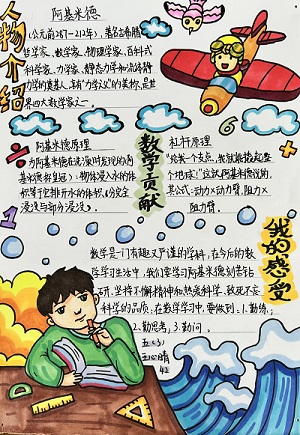 人物介绍
阿基米德
(公元前287-212年),著名古希腊
哲学家、数学家、物理学家、百科式
科学家、力学家、静态力学和流体静
力学的奠基人,享有"力学父"的美称,
世界四大数学家之一。
数学贡献
阿基米德原理
物体浸入水的体
积等于它排开水的体积。(分完全
浸没与部分浸没)。
杠杆原理
"给我一个支点,我就能撬起整
个地球!"这就是阿基米德说的,
其公式:动力×动力臂,阻力×
阻力臂。
6
1
我的感受
数学是一门有趣又严谨的学科,在今后的数
学学习生活中,我们要学习阿基米德刻苦钻
研,坚持不懈精神和热爱科学、致死不忘
科学的品质,在数学学习中,要做到:1.勤练;
2.勤思考;3.勤问。